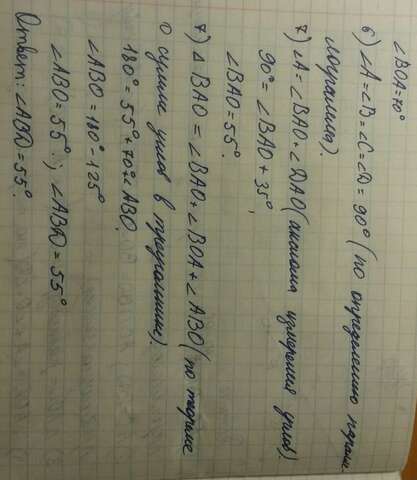 ∠BOA=70°
6) ∠A=∠B=∠C=∠D=90° (по определению парал-
лограмма).
7) ∠A=∠BAO+∠DAO (аксиома измерения углов)
90°=∠BAO+35°,
∠BAO=55°.
7) ΔBAO=∠BAO+∠BOA+∠ABO (по теореме
о сумме углов в треугольнике).
180°=55°+70°+∠ABO.
∠ABO=180°-125°
∠ABO=55°; ∠ABD=55°
Ответ: ∠ABD=55°.